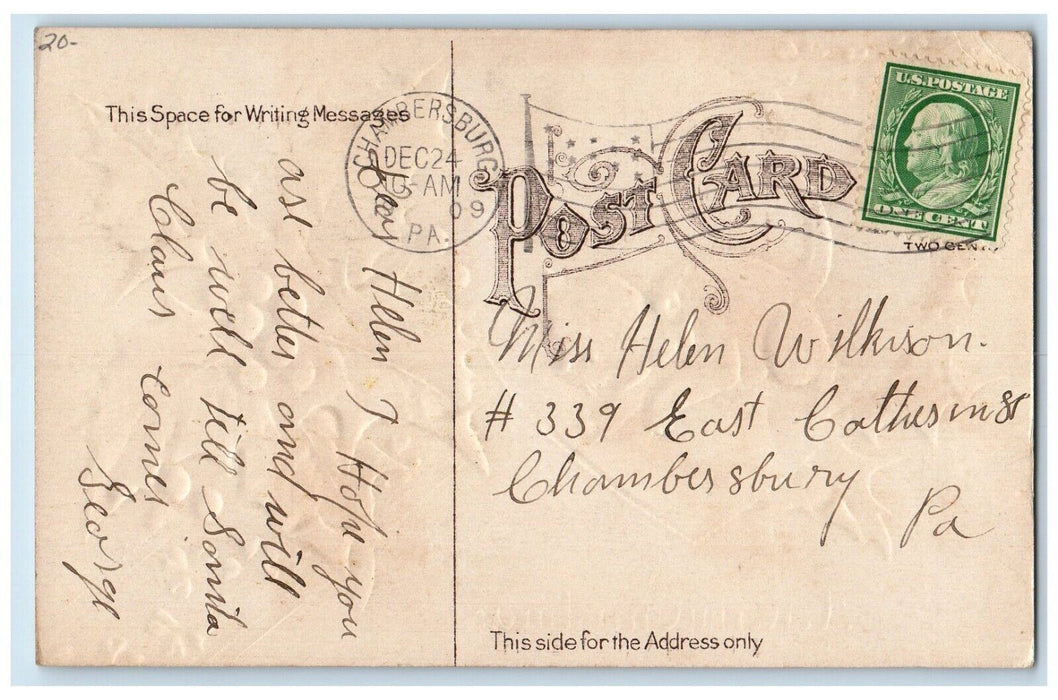 20-
This Space for Writing Messages
CHAMBERSBURG
DEC 24
-AM
09
PA.
POST CARD
U.S. POSTAGE
ONE CENT
TWO CEN
Dear Helen I Hope you
are better and will
be well till Santa
Claus Comes
George
Miss Helen Wilkison.
# 339 East Catherin St
Chambersbury
Pa
This side for the Address only